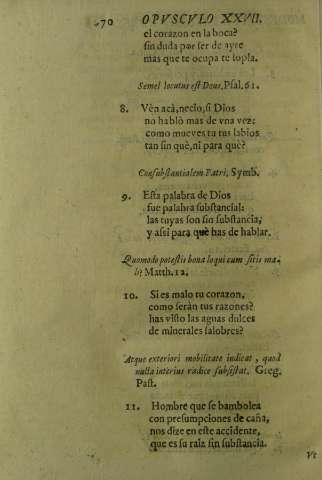 470 OPVSCVLO XXVII.
el corazon en la boca?
ſin duda por ſer de ayre
mas que te ocupa te ſopla.
Semel locutus eſt Deus, Pſal. 61.
8. Vèn acà, necio, ſi Dios
no hablò mas de vna vez;
como mueves tu tus labios
tan ſin què, ni para què?
Conſubſtantialem Patri, Symb.
9. Eſta palabra de Dios
fue palabra ſubſtancial:
las tuyas ſon ſin ſubſtancia,
y aſsi para què has de hablar.
Quomodo poteſtis bona loqui cum ſitis ma-
li? Matth. 12.
10. Si es malo tu corazon,
como ſeràn tus razones?
has viſto las aguas dulces
de minerales ſalobres?
Atque exteriori mobilitate indicat, quod
nulla interius radice ſubſiſtat. Greg.
Paſt.
11. Hombre que ſe bambolea
con preſumpciones de caña,
nos dize en eſte accidente,
que es ſu raiz ſin ſubſtancia.
Vt